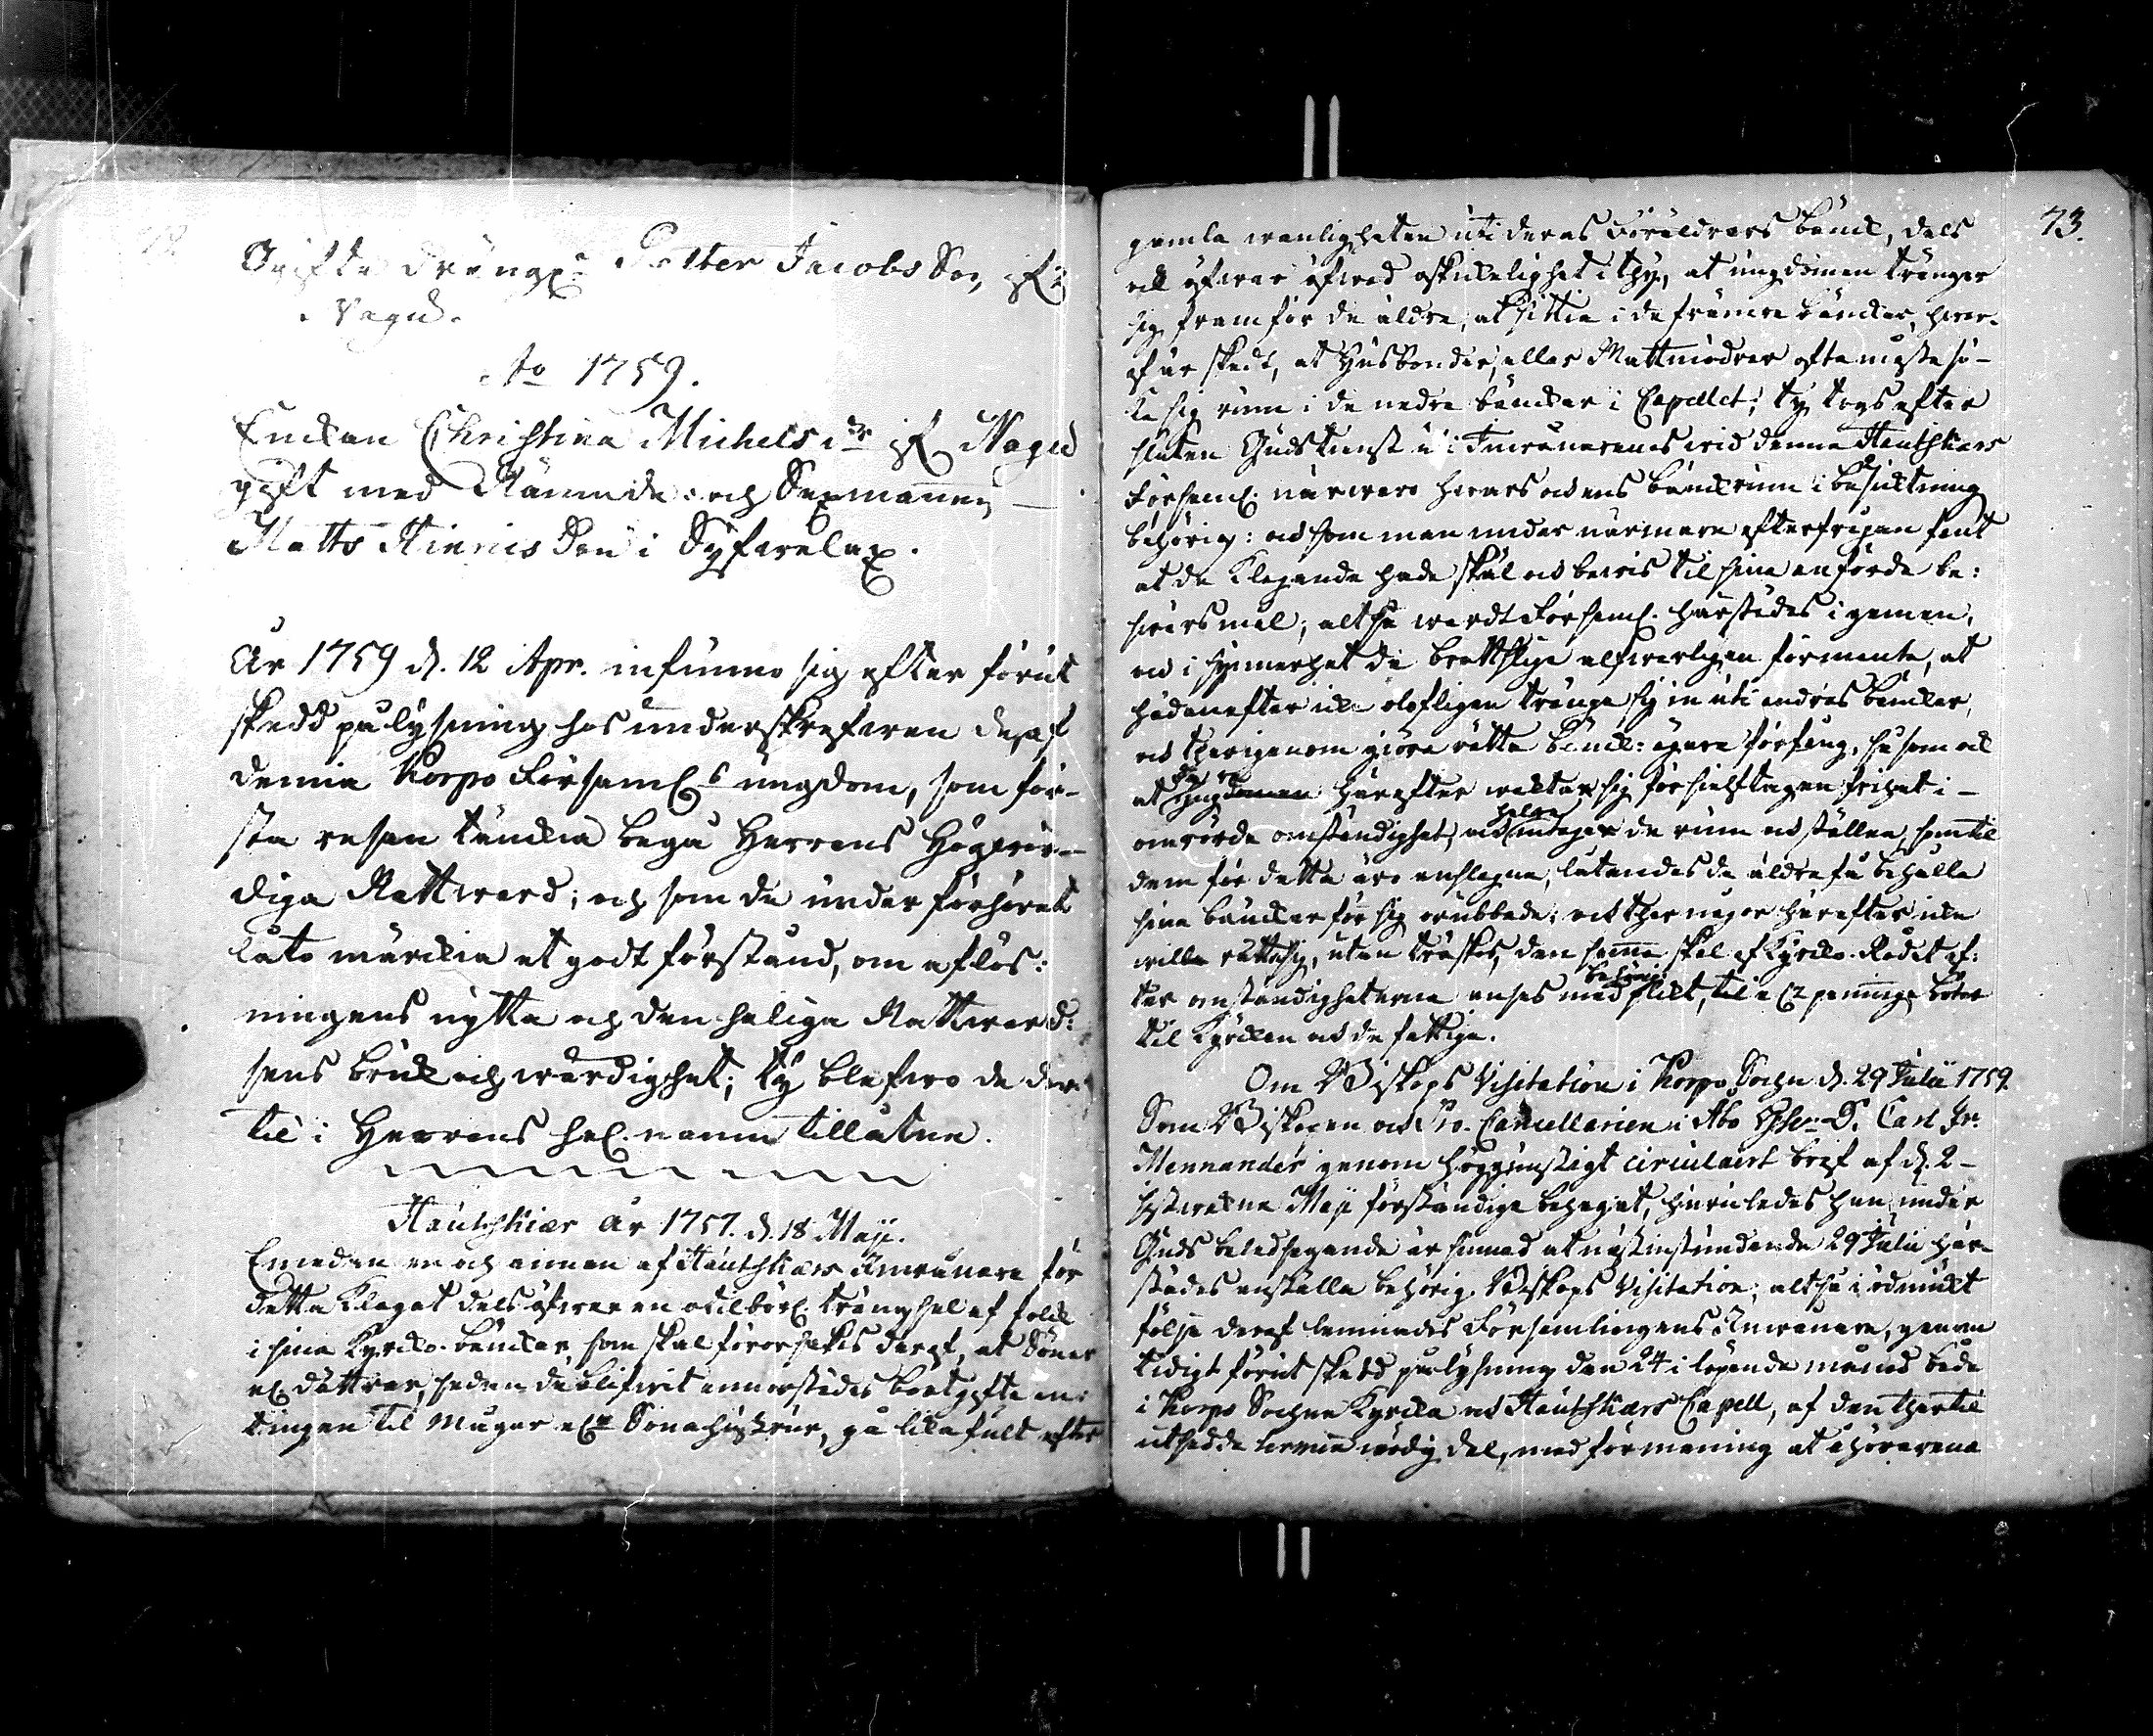 72.
Ogifte drängen Petter Jacobs Son, ifr:
Nagu.
Ao 1759.
Enckan Christina Michels dr ifr Nagu
gift med Nämnde- och Sexmannen
Matts Hinrics Son i Syfwerlax.
År 1759 d. 12 Apr. infunno sig efter förut
skedd pålysning hos underskrefwen desse af
denna Korpo Församl:s ungdom, som för-
sta resan täncka begå Herrens Högwör-
diga Nattward; och som de under förhöret
låto märckia et godt förstånd, om aflös:
ningens nytta och den heliga Nattward:
sens bruk och wärdighet; ty blefwo de der
til i Herrens hel. namn tillåtne.
Hautskiär År 1757. d. 18 Maji.
Emedan en och annan af Hautskiärs Inwånare för
detta klagat dels öfwer en otilbörl. trängsel af folck
i sina Kyrcko-bänckar, som skal förorsakas deraf, at Söner
el. döttrar, sedan de blifwit annorstädes bortgifte an-
tingen til Mågar el:r Sonahustrur, gå lika fult efter
73.
gamla wanligheten uti deras Föräldrars bänck, dels
ock öfwer oskickelighet i thy, at ungdomen tränger
sig framför de äldre, at sittia i de främre bänckar, hwar-
af är skedt, at Husbönder, eller Mattmödrar ofta måste sö-
ka sig rum i de nedre bänckar i Capellet; ty togs efter
sluten Gudstienst i Inwånarenas wid denna Hautskiärs
Församl. närwaro hwars och ens bänckrum i besicktning
behörig: och som man under närmare efterfrågan fant
at de klagande hade skäl och bewis til sina anförde be:
swärsmål; altså wardt Församl. härstädes i gemen,
och i synnerhet de brottslige alfwarligen förmante, at
hädanefter icke olofligen tränga sig in uti andras bänckar,
och therigenom giöra rätta bänck-ägare förfång, så som ock
at Ungdomen härefter wachtar sig för sielftagen frihet i
omrörde omständighet, och intager de rum och ställen, som til
dem för detta äro anslagne, låtandes de äldre få behålla
sina bänckar för sig orubbade; och ther någon härefter icke
wille rätta sig, utan trotsar, den samme skal af Kyrcko-Rådet ef:
ter omständigheterne anses med behörig plickt, til penninge böter
til Kyrckan och de fattiga.
Om Biskops Visitation i Korpo Sochn d. 29 Julii 1759.
Som Biskopen och Pro-Cancellarien i Åbo Herr D. Carl Fr.
Mennander genom höggunstigt circulairt bref af d. 2
sistwekne Maji förständiga behagat, huruledes han under
Guds beledsagande är sinnad at nästinstundande 29 Julii här-
städes anställa behörig Biskops Visitation; altså i ödmiukt
följe deraf lemnades Församlingens Inwånare, genom
tidigt förut skedd pålysning den 24 i löpande månad både
i Korpo Sochne Kyrcka och Hautskiärs Capell, af den thertil
utsedde del, med förmaning at åhörarena